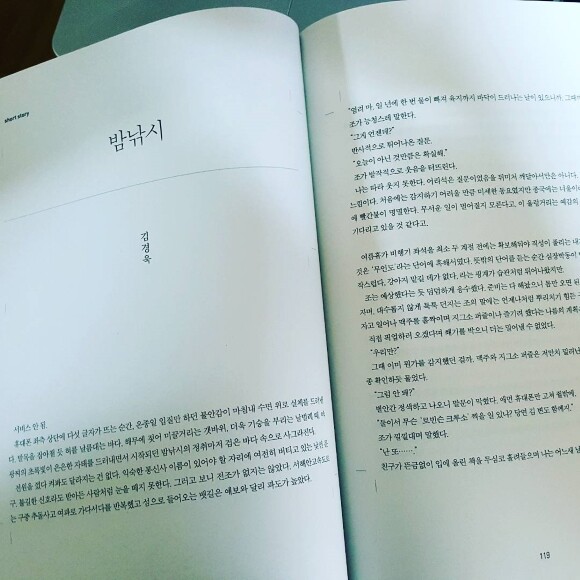 short story
밤낚시
김경욱
서비스 안 됨.
휴대폰 좌측 상단에 다섯 글자가 뜨는 순간, 온종일 입질만 하던 불안감이 마침내 수면 위로 실체를 드러냈
다. 발목을 잡아챌 듯 혀를 날름대는 바다, 해무에 젖어 미끌거리는 갯바위, 더욱 기승을 부리는 날벌레 떼
원을 켰다 꺼봐도 달라지는 건 없다. 익숙한 통신사 이름이 있어야 할 자리에 여전히 떠 있는
구. 불길한 신호라도 받아든 사람처럼 눈을 떼지 못한다. 그러고 보니 전조가 없지는 않았다. 서해안고속도로
는 구중 추돌사고 여파로 가다서다를 반복했고 섬으로 들어오는 뱃길은 예보와 달리 파도가 높았다.
"염려 마. 일 년에 한 번 물이 빠져 육지까지 바닥이 드러나는 날이 있으니까. 그때
조가 능청스레 말한다.
"그게 언젠데?"
반사적으로 튀어나온 질문.
"오늘이 아닌 것만큼은 확실해."
조가 발작적으로 웃음을 터뜨린다.
나는 따라 웃지 못한다. 어리석은 질문이었음을 뒤미처 깨달아서만은 아니다.
느낌이다. 처음에는 감지하기 어려울 만큼 미세한 동요였지만 종국에는
에 빨간불이 명멸한다. 무서운 일이 벌어질지 모른다고, 이 울렁거리는 예감의
기다리고 있을 것 같다고.
여름휴가 비행기 좌석을 최소 두 계절 전에는 확보해둬야 직성이 풀리는 내가
것은 '무인도'라는 단어에 혹해서였다. 뜻밖의 단어를 듣는 순간 심장박동이
작스럽다, 강아지 맡길 데가 없다, 라는 핑계가 습관처럼 튀어나왔지만.
조는 예상했다는 듯 덤덤하게 응수했다. 준비는 다 해놨으니 몸만 오면
자며. 대수롭지 않게 툭툭 던지는 조의 말에는 언제나처럼 뿌리치기 힘든
자고 일어나 맥주를 홀짝이며 지그소 퍼즐이나 즐기려 했다는 나름의 계획은
직접 픽업하러 오겠다며 쐐기를 박으니 더는 밀어낼 수 없었다.
"우리만?"
그때 이미 뭔가를 감지했던 걸까. 맥주와 지그소 퍼즐은 저만치 밀려난
중 확인하듯 물었다.
"그럼 안 돼?"
별안간 정색하고 나오니 말문이 막혔다. 애먼 휴대폰만 고쳐 쥘밖에.
"둘이서 무슨 '로빈슨 크루소' 찍을 일 있냐? 당연 김 변도 함께지."
조가 낄낄대며 말했다.
"난 또……."
친구가 뜬금없이 입에 올린 책을 무심코 흘려들으며 나는
119